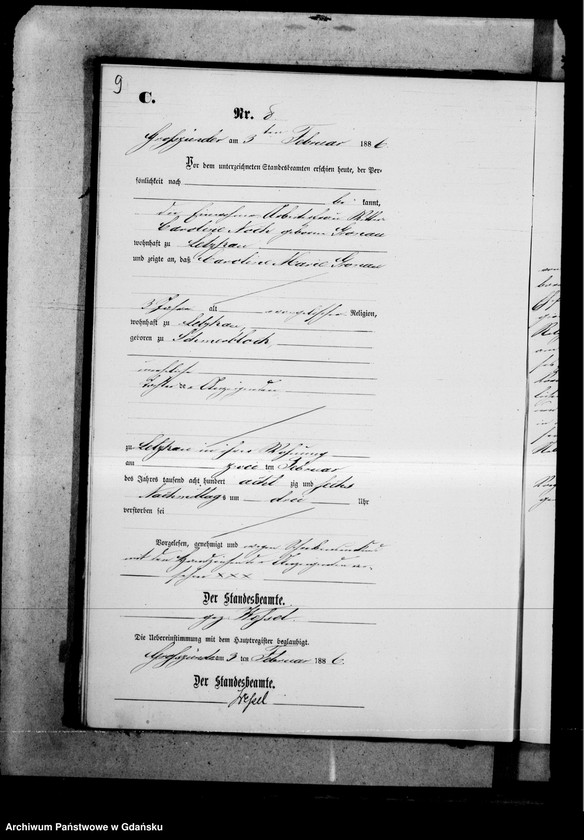 9
C.
Nr. 8
Großzünder am 3 ten Februar 1886.
Vor dem unterzeichneten Standesbeamten erschien heute, der Per-
sönlichkeit nach
be kannt,
die
Caroline geborene Gronau
wohnhaft zu Letzkau
und zeigte an, daß Caroline Marie Gronau
3 Jahre alt evangelischer Religion,
wohnhaft zu Letzkau,
geboren zu Schmerblock
uneheliche
Tochter der Anzeigenden
zu Letzkau in ihrer Wohnung
am zwei ten Februar
des Jahres tausend acht hundert acht zig und sechs
Nachmittags um drei Uhr
verstorben sei
Vorgelesen, genehmigt und wegen
mit dem Handzeichen der Anzeigenden ver-
sehen XXX
Der Standesbeamte.
gez. Wessel.
Die Uebereinstimmung mit dem Hauptregister beglaubigt.
Großzünder am 3 ten Februar 1886.
Der Standesbeamte.
Wessel
Archiwum Państwowe w Gdańsku